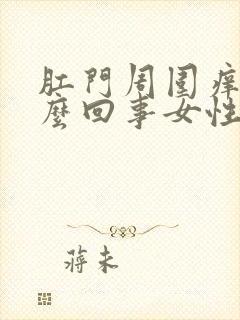 肛門周围痒
麼回事女性
蒋未